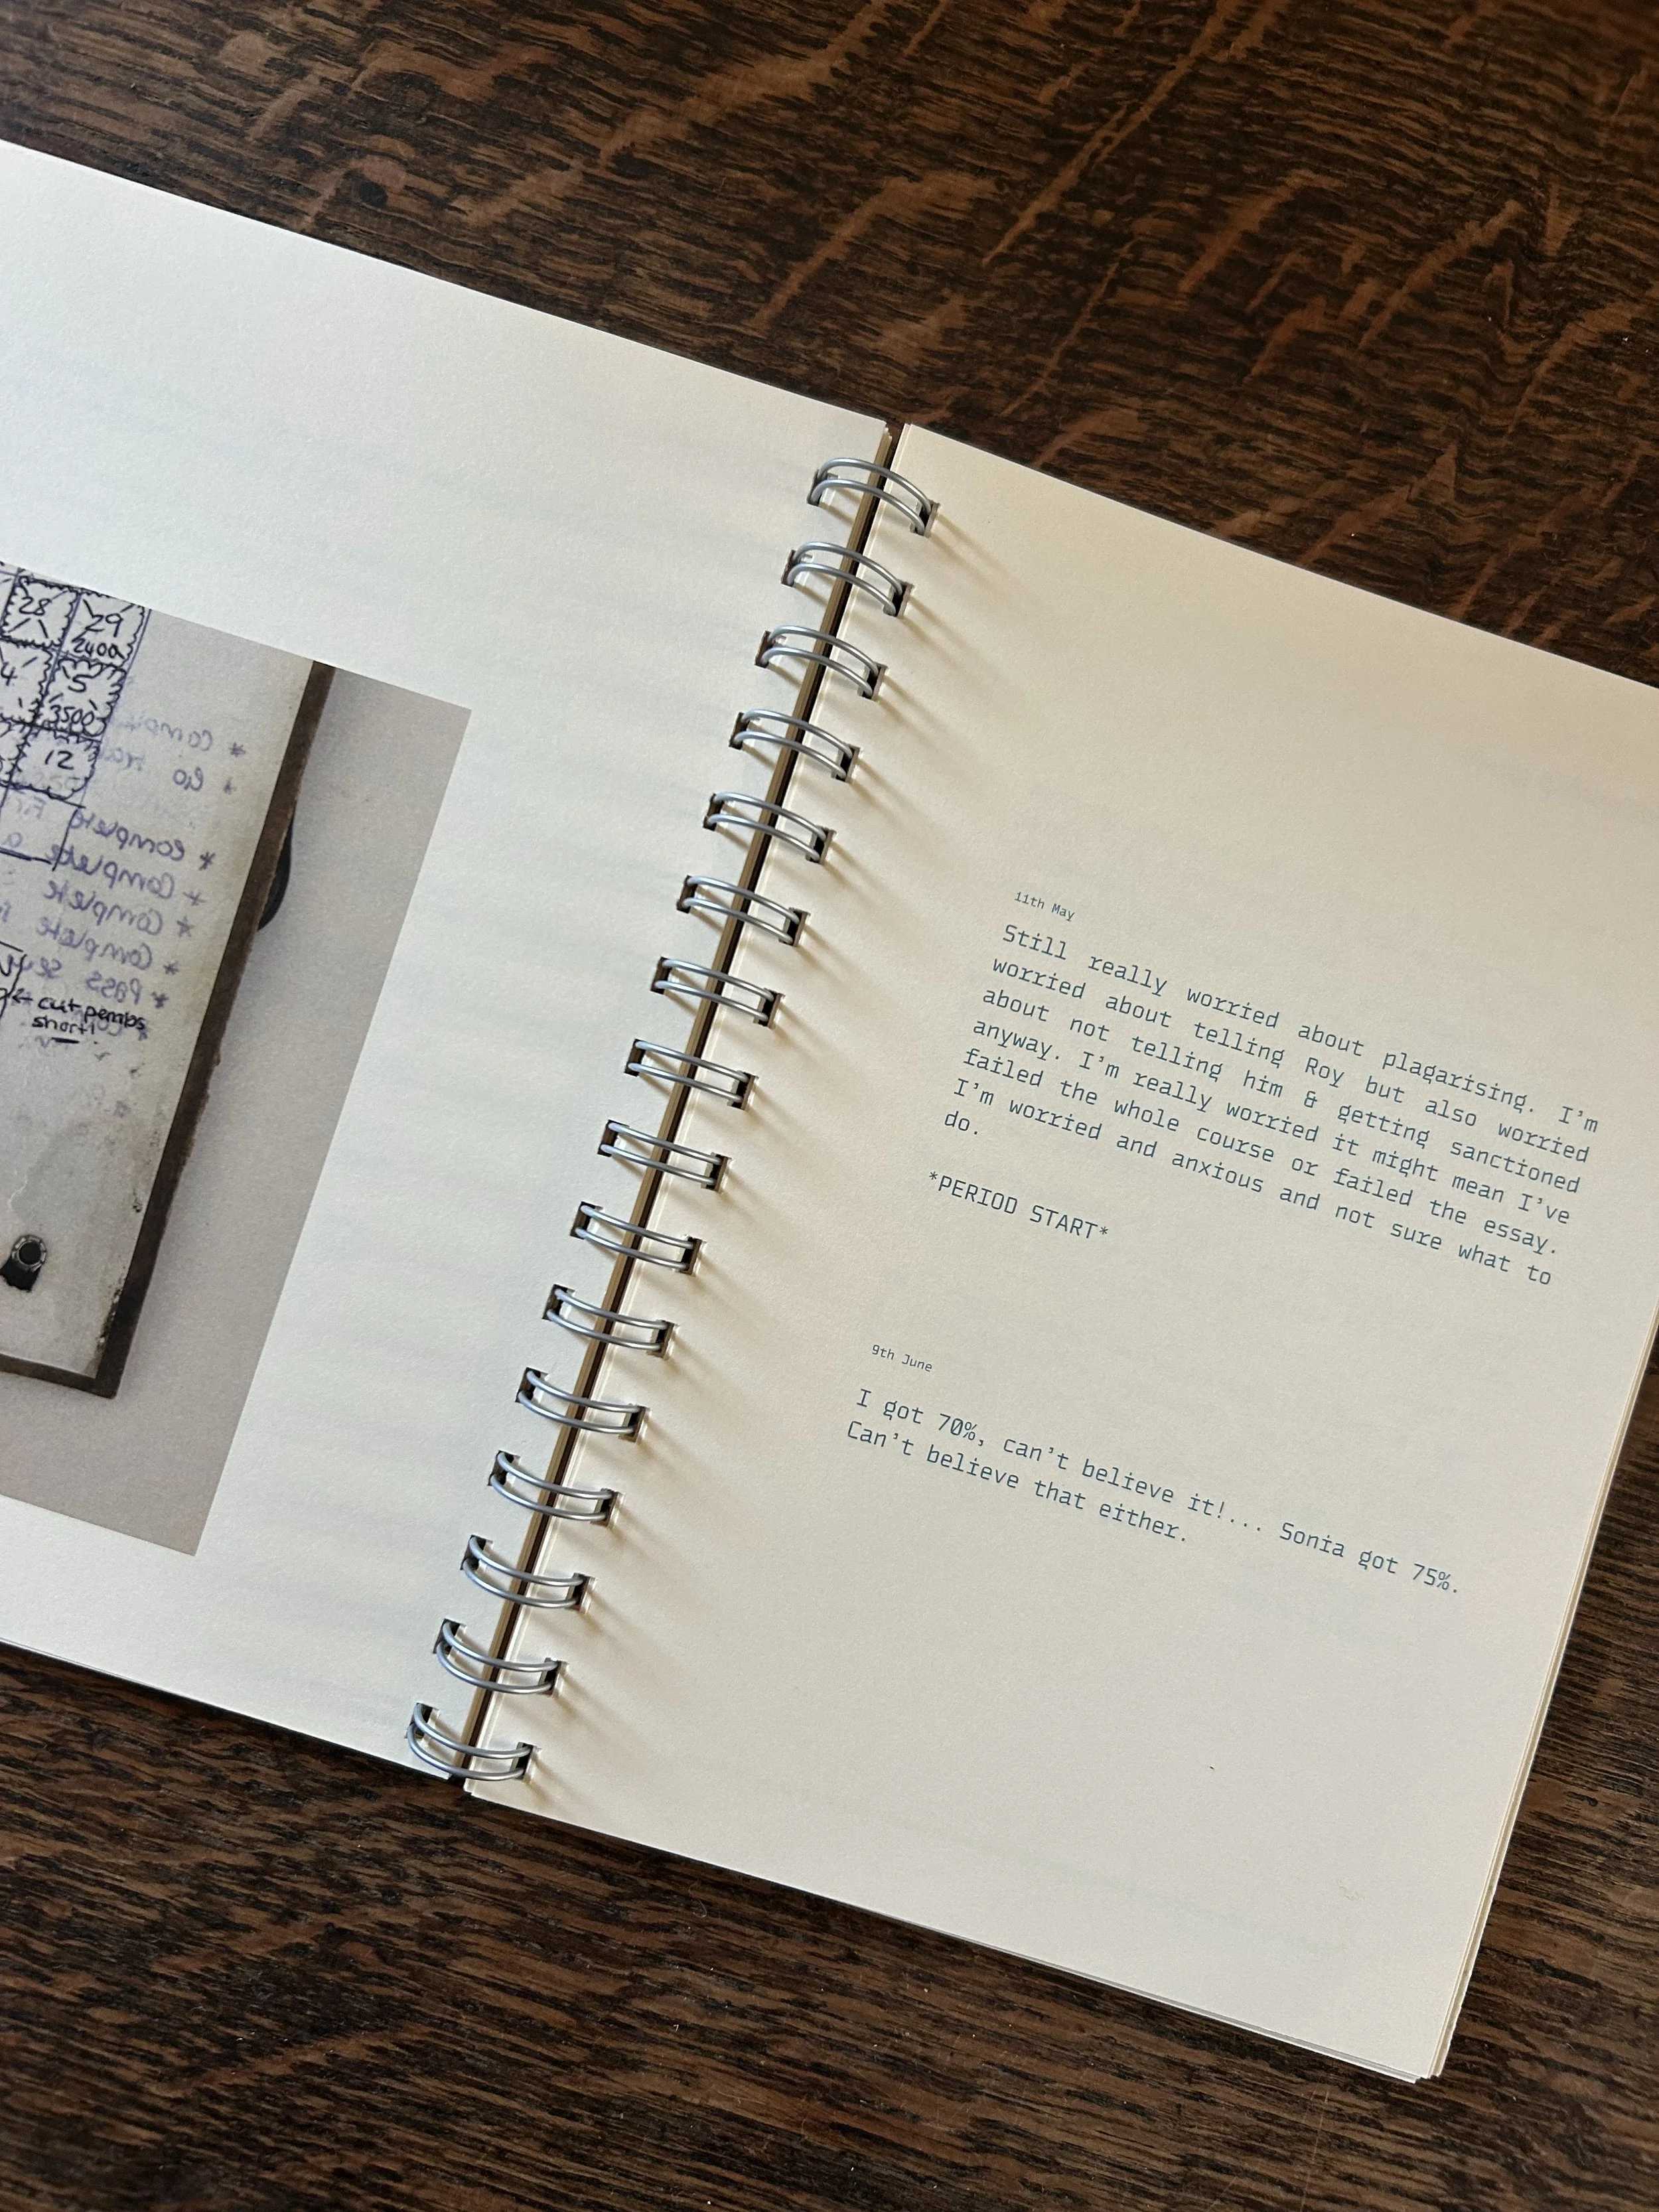 28
29
2400
4
5
3500
12
← cut pembs
short!
11th May
Still really worried about plagarising. I'm
worried about telling Roy but also worried
about not telling him & getting sanctioned
anyway. I'm really worried it might mean I've
failed the whole course or failed the essay.
I'm worried and anxious and not sure what to
do.
*PERIOD START*
9th June
I got 70%, can't believe it!... Sonia got 75%.
Can't believe that either.